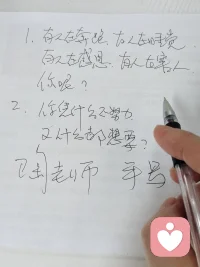 1. 有人在奔跑. 有人在
有人在感恩. 有人在
你呢?
2. 你凭什么不努力
又什么都想要?
老师 平